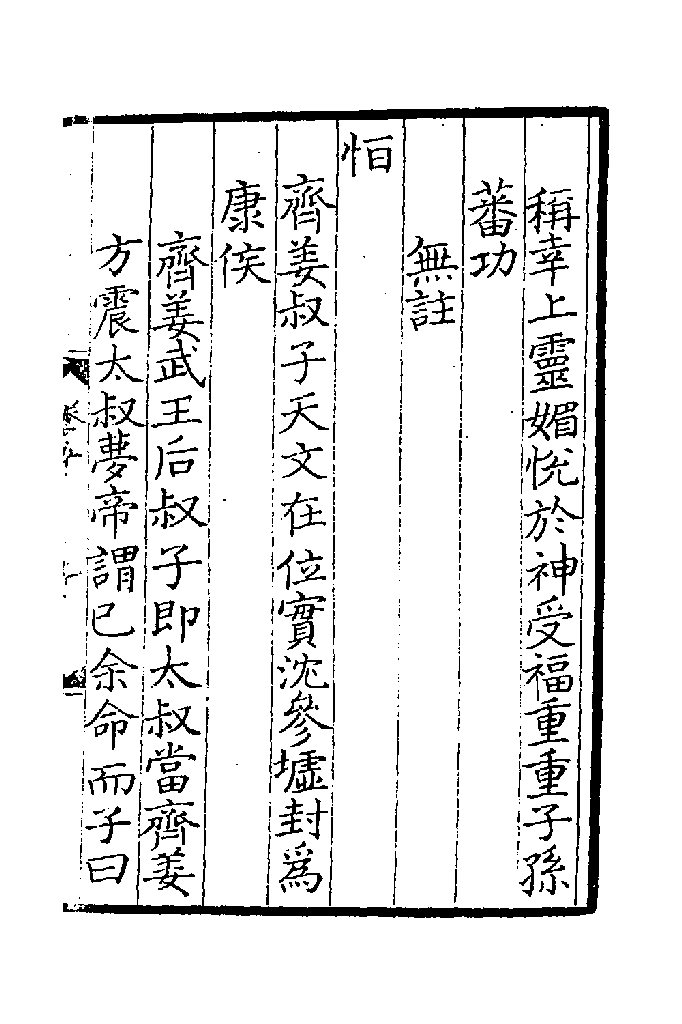 稱幸上靈媚悅於神受福重重子孫
蕃功
無註
恒
齊姜叔子天文在位實沈參墟封為
康侯
齊姜武王后叔子即太叔當齊姜
方震太叔夢帝謂已余命而子曰